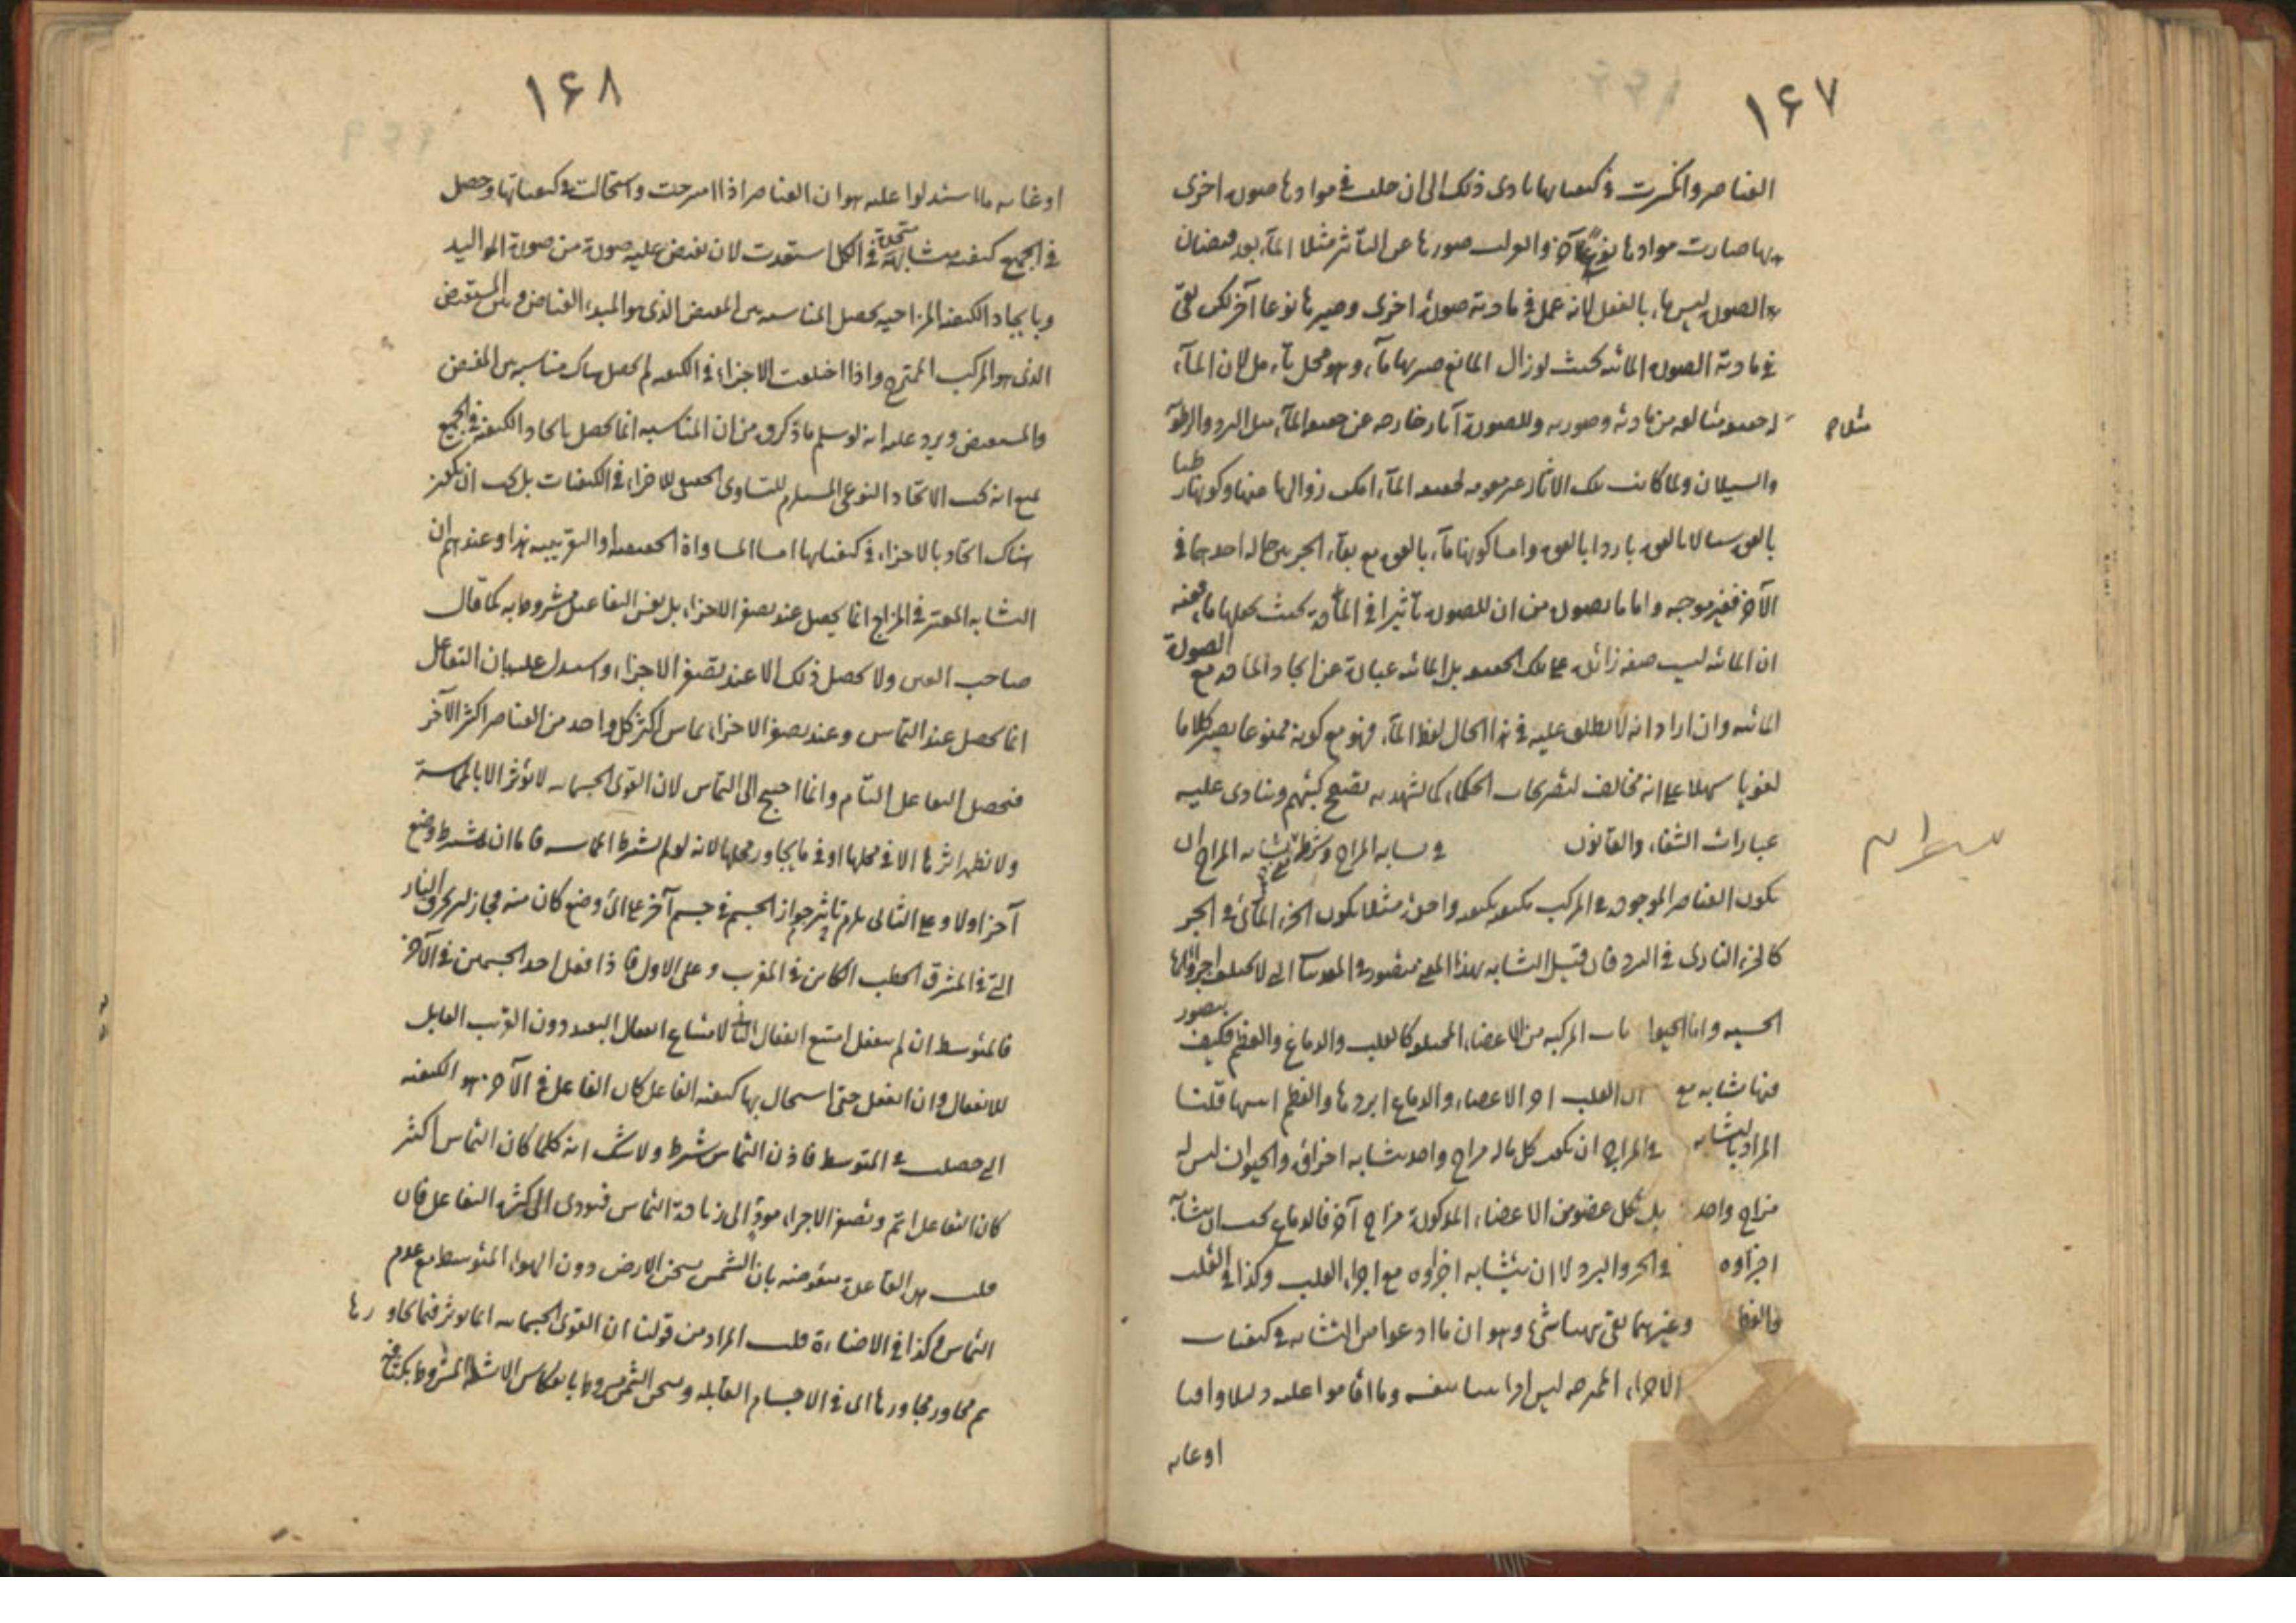 ١۶٧
العناصر وانكسرت في كيفياتها يادى ذلك الى ان حلت في موادها صورة اخرى
بها صارت موادها نوعا آخر صورها عن التأثر مثلا الماء بعد فيضان
الصورة ليس ماء بالفعل لانه عمل في مادته صورة اخرى وصيرها نوعا آخر لكن بقى
في مادته الصورة المائية بحيث لو زال المانع ماء وهو محل تأمل لان الماء
له حقيقة متألفة من مادته وصورته وللصورة آثار خارجة عن حقيقة الماء مثل البرد والرطوبة
مثلا
والسيلان ولما كانت تلك الآثار غير مقومة لحقيقة الماء امكن زوالها عنها وكونها رطبا
بالقوة سيالا بالقوة باردا بالقوة واما كونها ماء بالقوة مع بقاء الجزئين حالا احدهما في
الآخر فغير موجه واما ما يصوره من ان للصورة تأثيرا في المادة بحيث يجعلها ماء ففيه
ان المائية ليست صفة زائدة على تلك الحقيقة بل المائية عبارة عن اتحاد المادة مع الصورة
المائية وان اراد انه لا يطلق عليه في هذا الحال لفظ الماء فهو مع كونه ممنوعا يصير كلاما
لغويا على انه مخالف لتصريحات الحكماء كما يشهد به تصفح كتبهم وينادى عليه
عبارات الشفاء والقانون في تشابه المزاج تشابه المزاج ان
يكون العناصر الموجودة في المركب متكيفة بكيفية واحدة مثلا يكون الجزء المائى في الحر
كالجزء النارى في البرد فان قيل التشابه بهذا المعنى متصور في التى لا يختلف اجزاؤها
الحسية واما الحيوانات المركبة من الاعضاء المختلفة كالقلب والدماغ والعظم فكيف يتصور
فيها تشابه مع ان القلب احر الاعضاء والدماغ ابردها والعظم ايبسها قلنا
المراد بالتشابه في المزاج ان يكون كل ماله مزاج واحد متشابه اجزاؤه والحيوان ليس له
مزاج واحد بل لكل عضو من الاعضاء المذكورة مزاج آخر فالدماغ يجب ان يتشابه
اجزاؤه في الحر والبرد لا ان يتشابه اجزاؤه مع اجزاء القلب وكذا في القلب
والعظم وغيرهما بقى ههنا شئ وهو ان ما ادعوا من التشابه في كيفيات
الاجزاء الممتزجة ليس امرا بينا بنفسه وما اقاموا عليه دليلا وافيا
او غاية
١۶٨
او غاية ما استدلوا عليه هو ان العناصر اذا امتزجت واستحالت في كيفياتها وحصل
في الجميع كيفية متشابهة في الكل استعدت لان تفيض عليه صورة من صورة المواليد
وبايجاد الكيفية المزاجية يحصل المناسبة بين المفيض الذى هو المبدء الفياض وبين المستفيض
الذى هو المركب الممتزج واذا اختلفت الاجزاء في الكيفية لم يحصل هناك مناسبة بين المفيض
والمستفيض ويرد عليه انه لو سلم ما ذكروه من ان المناسبة انما يحصل باتحاد الكيفية في الجميع
مع انه يجب الاتحاد النوعى المستلزم للتساوى الحقيقى للاجزاء في الكيفيات بل يجب ان يكون
هناك اتحاد بالاجزاء في كيفياتها اما المساواة الحقيقية او التقريبية هذا وعندهم ان
التشابه المعتبر في المزاج انما يحصل عند تصغر الاجزاء بل نفس التفاعل مشروط به كما قال
صاحب ولا يحصل ذلك الا عند تصغر الاجزاء واستدل عليه بان التفاعل
انما يحصل عند التماس وعند تصغر الاجزاء يماس اكثر كل واحد من العناصر اكثر الآخر
فيحصل التفاعل التام وانما احتيج الى التماس لان القوى الجسمانية لا تؤثر الا بالمماسة
ولا يظهر اثرها الا في محلها او في ما يجاور محلها لانه لو لم يشترط المماسة فاما ان يشترط وضع
آخر اولا وعلى الثانى يلزم جواز تاثير الجسم في جسم آخر على اى وضع كان منه فيجاز ان يحرق النار
التى في المشرق الحطب الكائن في المغرب وعلى الاول فاذا فعل احد الجسمين في الآخر
فالمتوسط ان لم ينفعل امتنع انفعال لامتناع انفعال البعيد دون القريب القابل
للانفعال وان انفعل حتى استحال بها كيفية الفاعل كان الفاعل في الآخر هو الكيفية
التى حصلت في المتوسط فاذن التماس شرط ولا شك انه كلما كان التماس اكثر
كان التفاعل اتم وتصغر الاجزاء مؤد الى زيادة التماس فيؤدى الى كثرة التفاعل فان
قلت هذه القاعدة منقوضة بان الشمس يسخن الارض دون الهواء المتوسط مع عدم
التماس وكذا في الاضاءة قلت المراد من قولنا ان القوى الجسمانية انما يؤثر فيما يجاورها
ثم مجاور مجاورها اى في الاجسام القابلة وتسخين الشمس مشروط بانعكاس الاشعة المشروط بكثافة